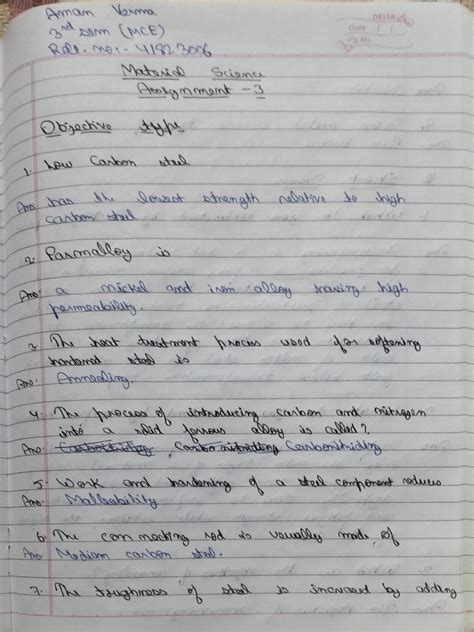 Aman Verma
3rd sem (MCE)
Roll. no:- 41823006
DELTA
Date
Pg No
Material Science
Assignment - 3
Objective type
1. Low Carbon steel
Ans has the lowest strength relative to high
carbon steel
2. Parmalloy is
Ans: a nickel and iron alloy having high
permeability.
3. The heat treatment process used for softening
hardened steel is
Ans: Annealing.
4. The process of introducing carbon and nitrogen
into a solid ferrous alloy is called?
Ans:
5. Work and hardening of a steel component reduces
Ans: Malleability
6. The con necking rod is usually made of
Ans Medium carbon steel.
7. The toughness of steel is increased by adding